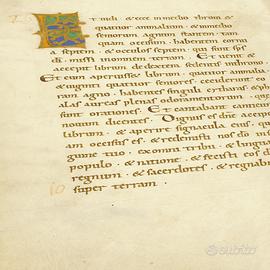 Et vidi · et ecce in medio throni et
quattuor animalium · et in medio
seniorum agnum stantem tam
quam occisum · habentem cornu
a septem · et oculos septem · qui sunt sps
dī · missi in omnem terram · Et venit et
accepit librum de dextera sedentis
Et cum aperuisset librum · quattuor animalia ·
et viginti quattuor seniores ceciderunt co
ram agno · habentes singuli citharas · et phi
alas aureas plenas odoramentorum · que
sunt orationes · Et cantabant canticum
novum dicentes · Dignus es dn̄e accipe
librum · et aperire signacula eius · qu
am occisus es · et redemisti nos dō in
guine tuo · ex omni tribu · et lingua
populo · et natione · et fecisti eos dō
regnum · et sacerdotes · et regnabu
super terram ·
subito